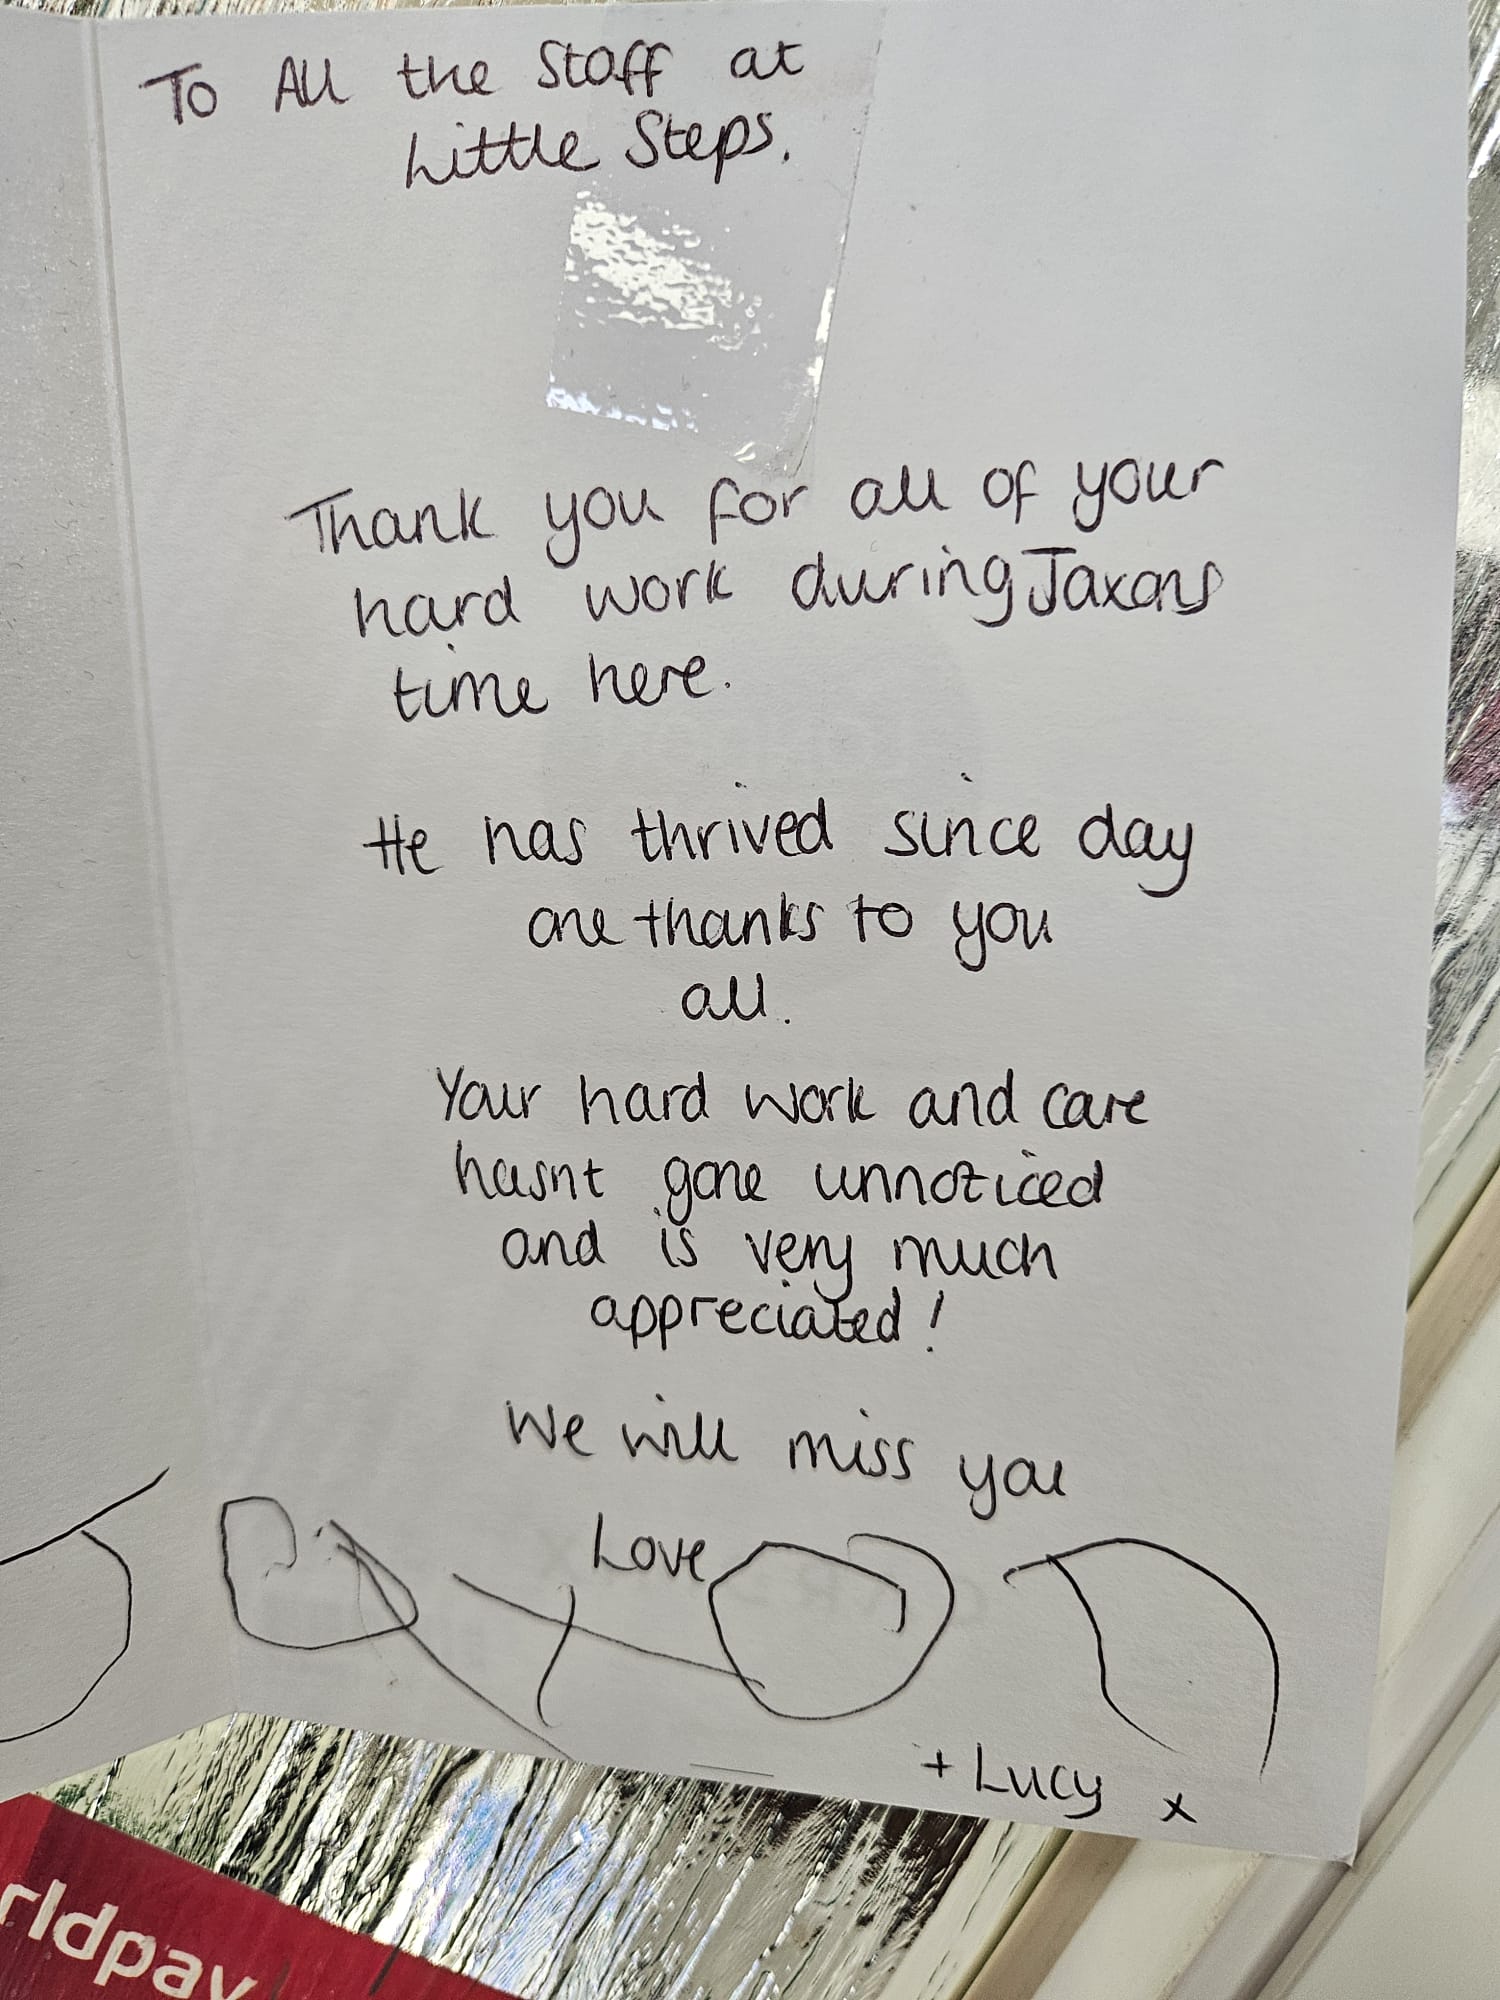 To All the Staff at
Little Steps.
Thank you for all of your
hard work during Jaxons
time here.
He has thrived since day
one thanks to you
all.
Your hard work and care
hasnt gone unnoticed
and is very much
appreciated!
We will miss you
Love
J a x o n
+ Lucy x
rldpay